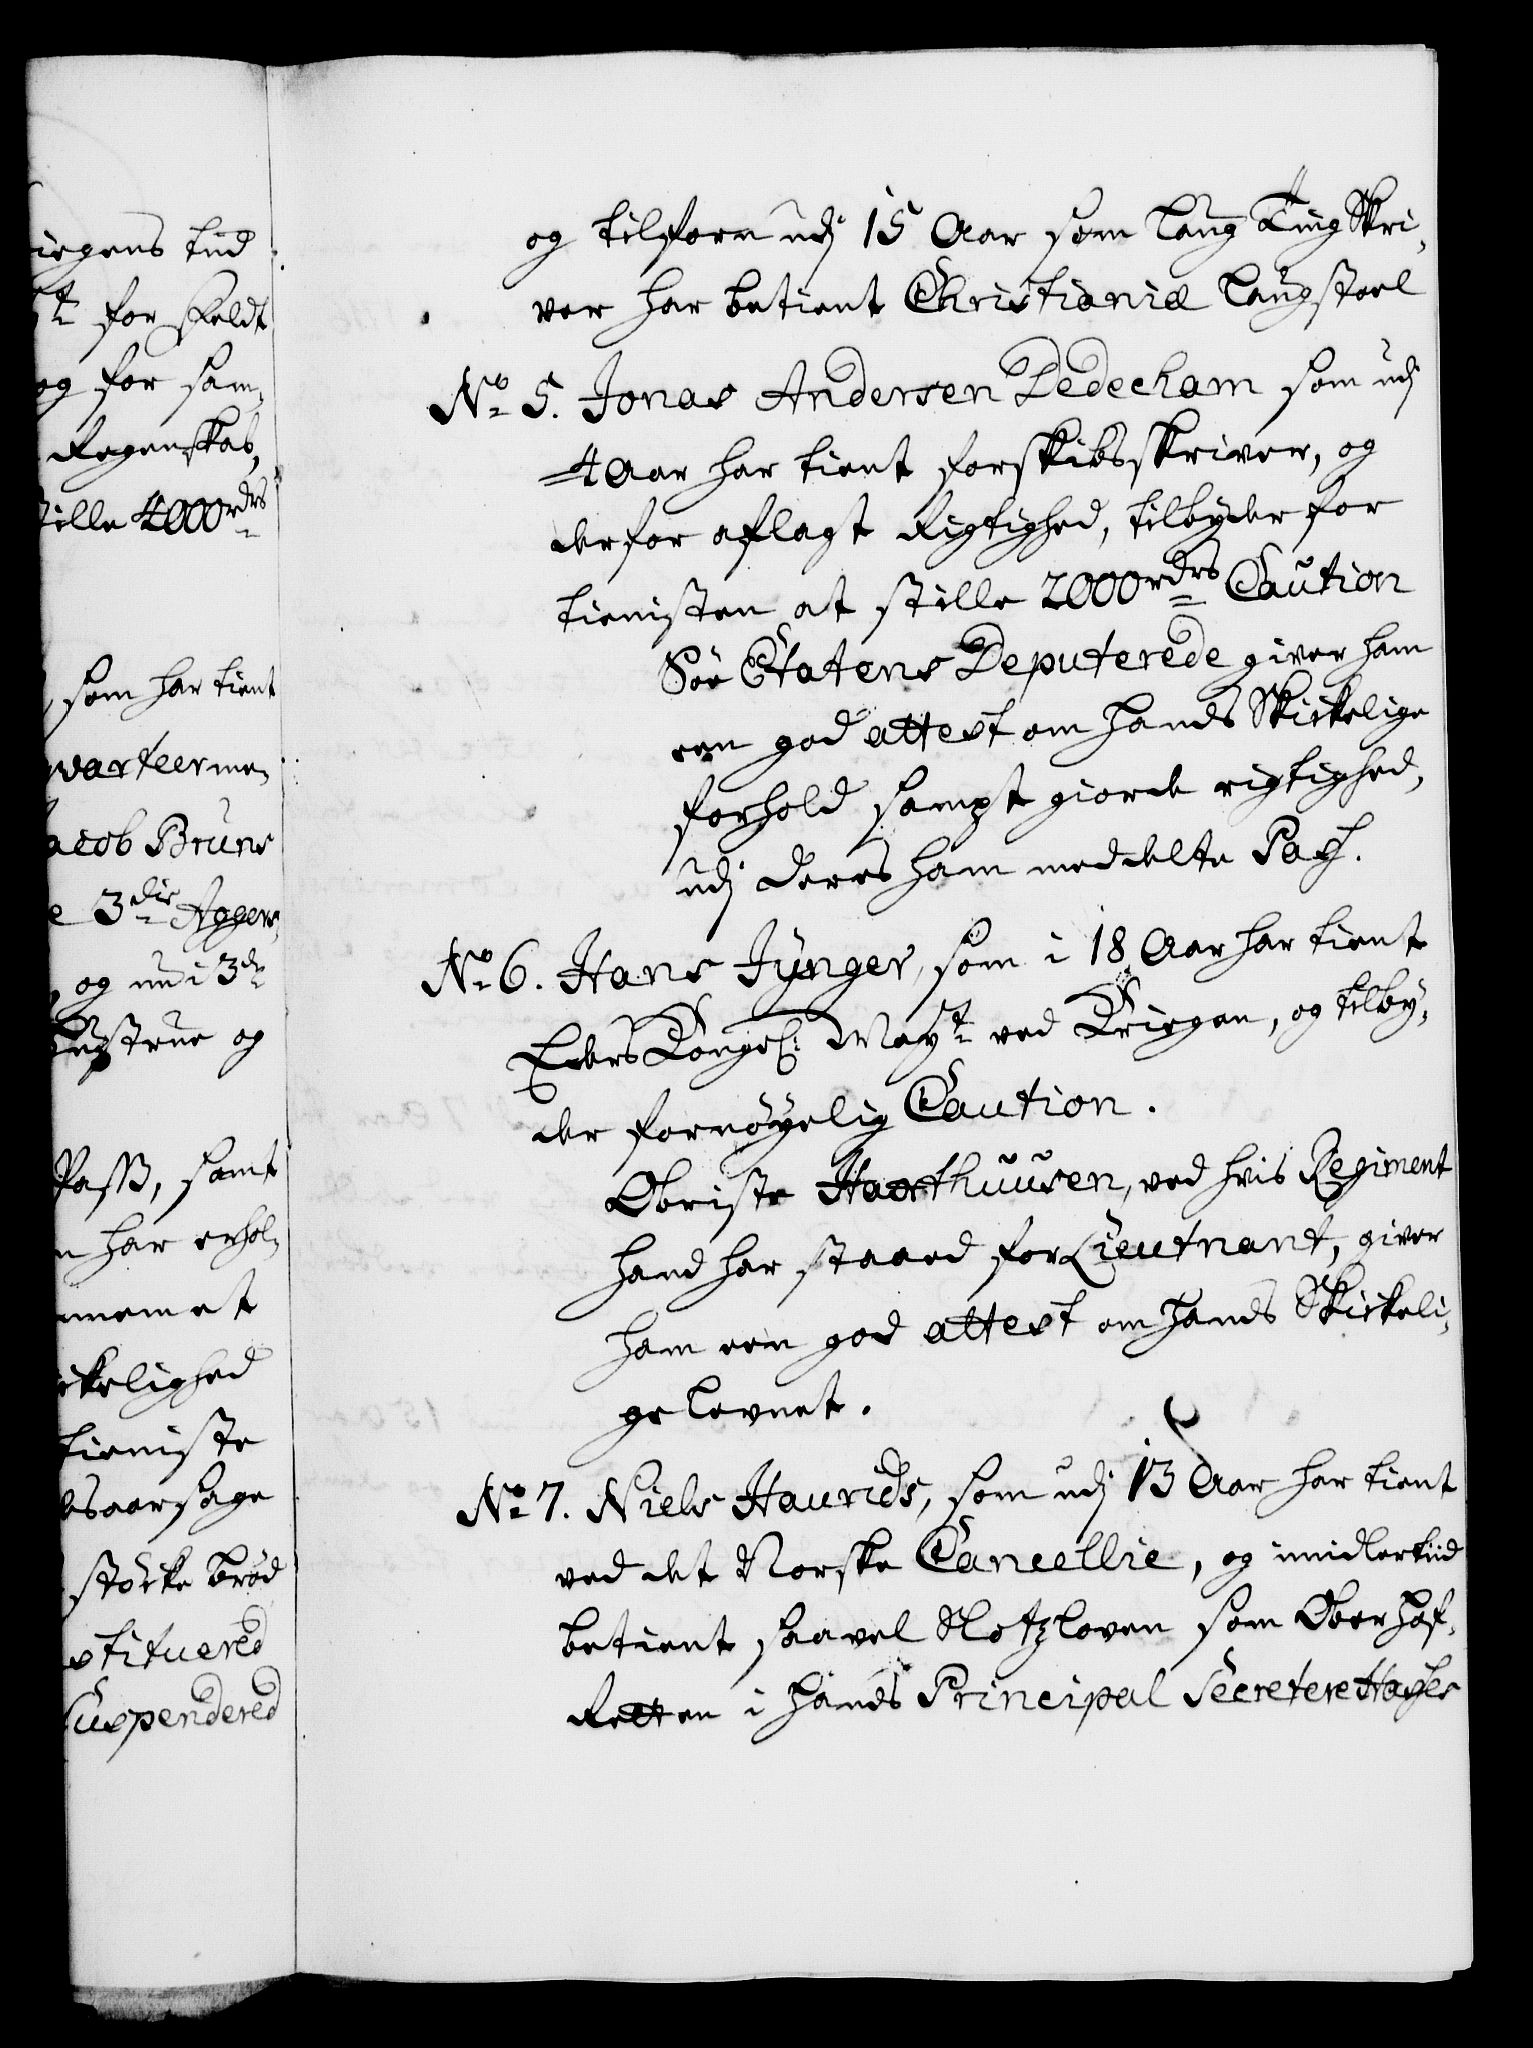 iegens tid
t for Feldt
og for sam¬
Regenskab,
stille 4000 rdrs
som har tient
qvarteerme¬
Jacob Bruns
3die Aggers
og nu i 3de
og
Pass, samt
har erhol¬
kelighed
tieniste
aarsage
støcke brød
stituered
Suspendered
og tilforn udj 15 Aar som Laug Ting Skri¬
ver har betient Christianiæ Laugstoel
No 5. Jonas Andersen Dedecham som udj
4 Aar har tient for Skibsskriver, og
derfor aflagt Rigtighed, tilbyder for
tienisten at stille 2000 rdrs Caution
Søe Etatens Deputerede giver ham
een god attest om hands Skickelige
forhold sampt giorde rigtighed,
udj deres ham meddelte Pass.
No 6. Hans Jÿnger, som i 18 Aar har tient
Eders Kongel: Mayt ved Kriigen, og tilby¬
der fornøyelig Caution.
Obriste Haxthuusen, ved hvis Regiment
hand har staaed for Lieutnant, giver
ham een god attest om hands Skickeli¬
ge levnet.
No 7. Niels Haurids, som udj 13 Aar har tient
ved det Norske Cancellie, og imidlertiid
betient saavel Slotzloven som OberHof¬
Retten i hands Principal Secretere Hasses